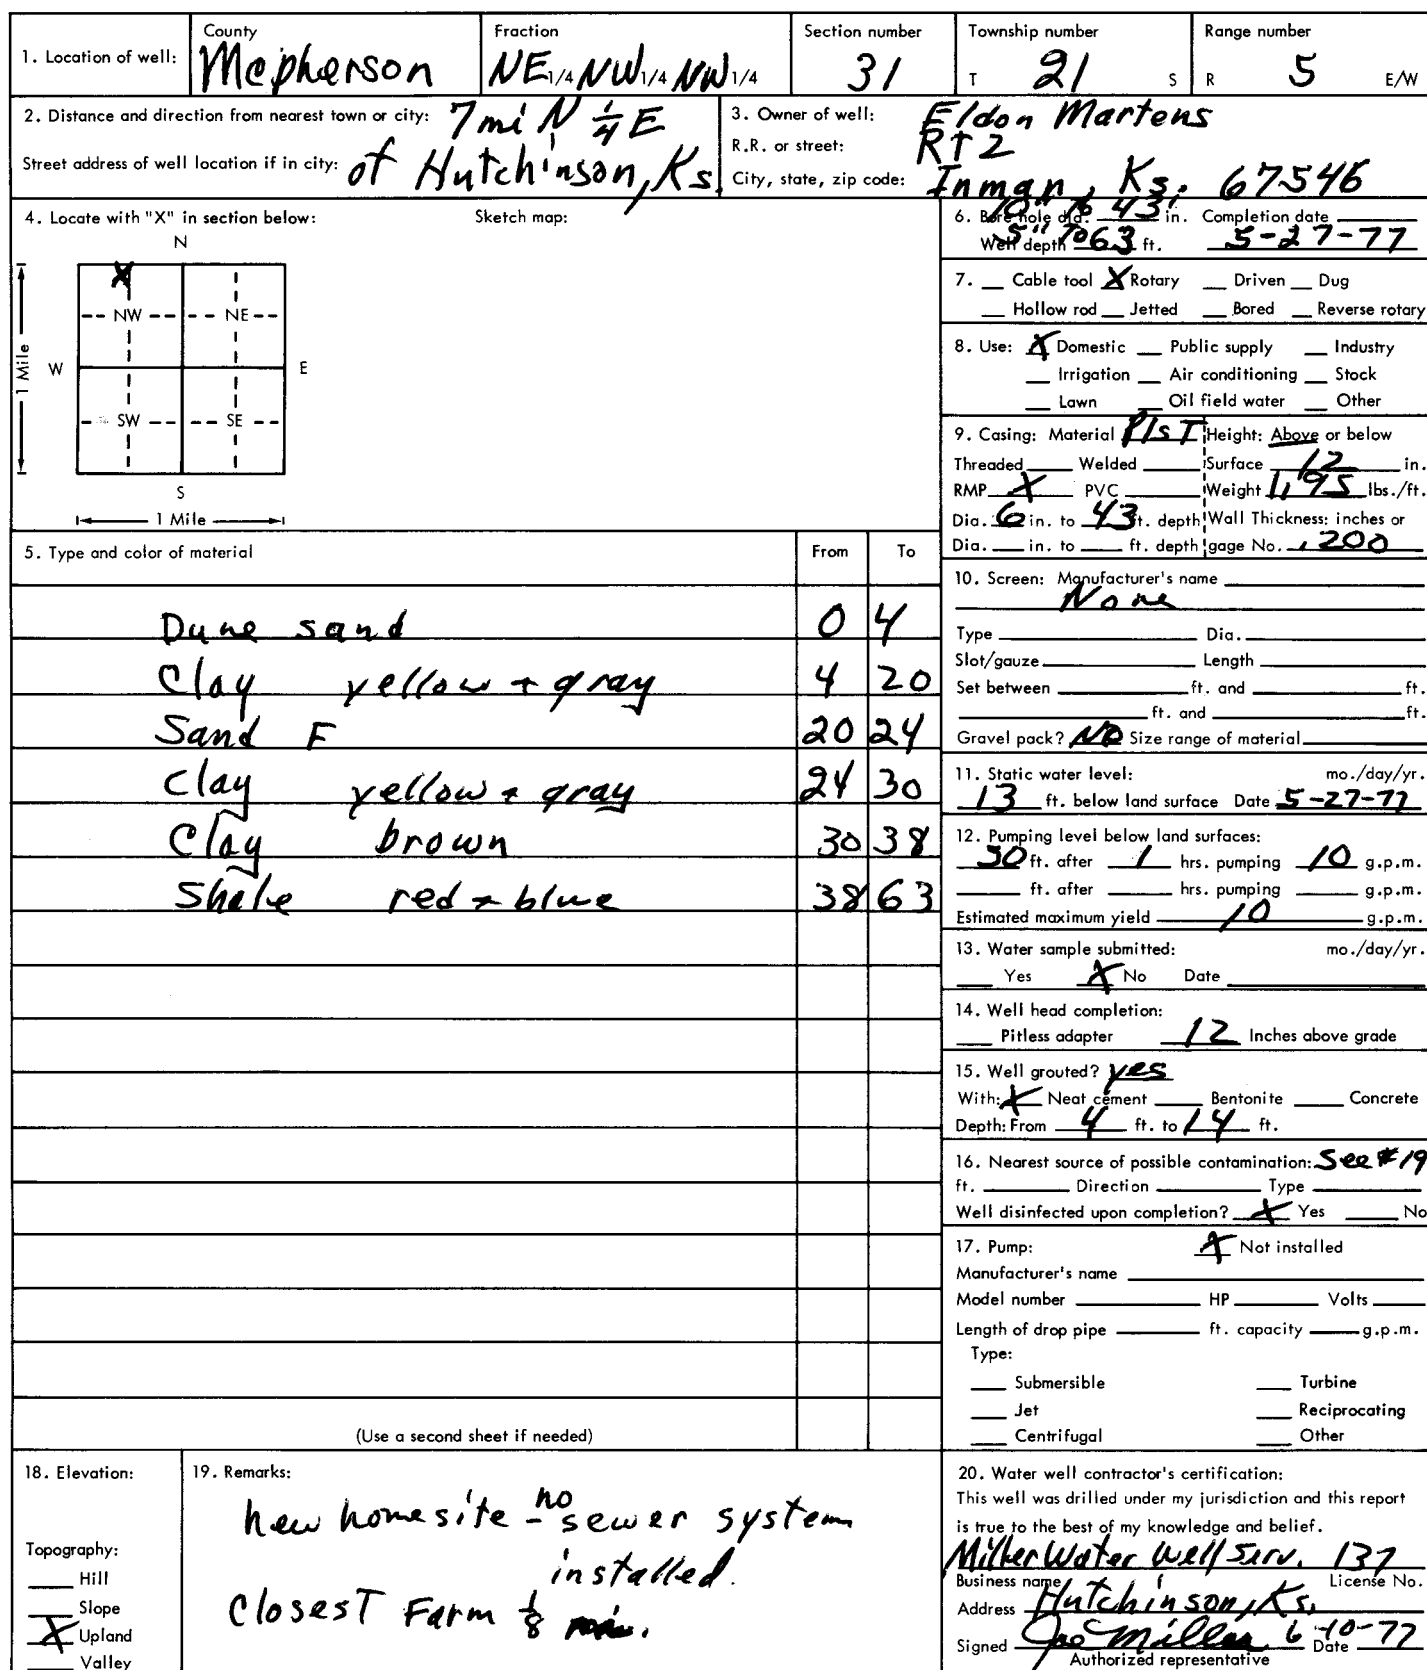 1. Location of well:
County
Mcpherson
Fraction
NE 1/4 NW 1/4 NW 1/4
Section number
31
Township number
T 21 S
Range number
R 5 E/W
2. Distance and direction from nearest town or city: 7 mi N 1/4 E
Street address of well location if in city: of Hutchinson, Ks.
3. Owner of well: Eldon Martens
R.R. or street: RT 2
City, state, zip code: Inman, Ks. 67546
4. Locate with "X" in section below:
Sketch map:
N
X
NW NE
W E
1 Mile
SW SE
S
1 Mile
5. Type and color of material From To
Dune sand 0 4
Clay yellow + gray 4 20
Sand F 20 24
Clay yellow + gray 24 30
Clay brown 30 38
Shale red + blue 38 63
(Use a second sheet if needed)
6. Bore hole dia. 10" To 43' in. Completion date
Well depth 5" To 63 ft. 5-27-77
7. Cable tool X Rotary Driven Dug
Hollow rod Jetted Bored Reverse rotary
8. Use: X Domestic Public supply Industry
Irrigation Air conditioning Stock
Lawn Oil field water Other
9. Casing: Material PlsT Height: Above or below
Threaded Welded Surface 12 in.
RMP X PVC Weight 1.95 lbs./ft.
Dia. 6 in. to 43 ft. depth Wall Thickness: inches or
Dia. in. to ft. depth gage No. .200
10. Screen: Manufacturer's name
None
Type Dia.
Slot/gauze Length
Set between ft. and ft.
ft. and ft.
Gravel pack? NO Size range of material
11. Static water level: mo./day/yr.
13 ft. below land surface Date 5-27-77
12. Pumping level below land surfaces:
50 ft. after 1 hrs. pumping 10 g.p.m.
ft. after hrs. pumping g.p.m.
Estimated maximum yield 10 g.p.m.
13. Water sample submitted: mo./day/yr.
Yes X No Date
14. Well head completion:
Pitless adapter 12 Inches above grade
15. Well grouted? yes
With: X Neat cement Bentonite Concrete
Depth: From 4 ft. to 14 ft.
16. Nearest source of possible contamination: See #19
ft. Direction Type
Well disinfected upon completion? X Yes No
17. Pump: X Not installed
Manufacturer's name
Model number HP Volts
Length of drop pipe ft. capacity g.p.m.
Type:
Submersible Turbine
Jet Reciprocating
Centrifugal Other
18. Elevation:
Topography:
Hill
Slope
X Upland
Valley
19. Remarks:
new homesite - no sewer system
installed.
Closest Farm 1/8 mi.
20. Water well contractor's certification:
This well was drilled under my jurisdiction and this report
is true to the best of my knowledge and belief.
Miller Water Well Serv. 137
Business name License No.
Address Hutchinson, Ks.
Signed Joe Miller Date 6-10-77
Authorized representative